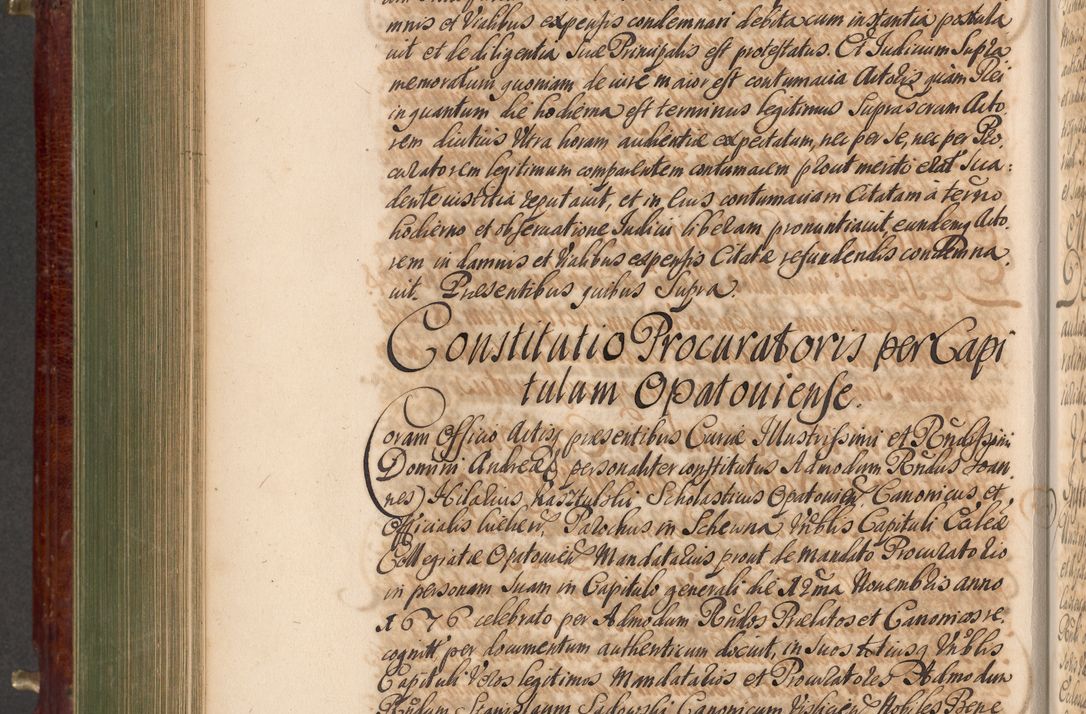 mnis et litalibus expensis condemnari debita cum instantia postula
uit et de diligentia suæ Principalis est protestatus. Et Iudicium Supra
memoratum quoniam de iure maior est contumacia Actoris quàm Rei
in quantum die hodierna est terminus legitimus Suprascram Acto
rem diutius Vltra horam audientiæ expectatum, nec per se, nec per Pro,
curatorem legitimum comparentem contumacem prout meriti erat Sua,
dente iustitia reputauit, et in Eius contumaciam Citatam à termo
hodierno et obseruatione Iudicii liberam pronuntiauit eundemq Acto,
rem in damnis et litalibus expensis Citatæ refundendis condemna,
uit. Præsentibus quibus Supra.
Constitutio Procuratoris per Capi
tulum Opatouiense.
Coram Officio Actisq præsentibus Curiæ Illustrissimi et Rndissimi
Domini Andreæ personaliter constitutus Admodum Rndus Joan
nes Hilarius Scholasticus Opatouien Canonicus, et
Officialis Parochus in Vnblis Capituli Eccleæ
Collegiatæ Opatouien Mandatarius prout de mandato Procuratorio
in personam suam in Capitulo generali die 12ma Nouembris anno
1676 celebrato per Admodum Rndos Prælatos et Canonicos re,
cognit per documentum authenticum docuit, in suos totiusq Vnblis
Capituli Veros legitimos Mandatarios et Procuratores Admodum
Rndum Stanislaum Sadowski Canonicum Vislicien Nobiles Bene